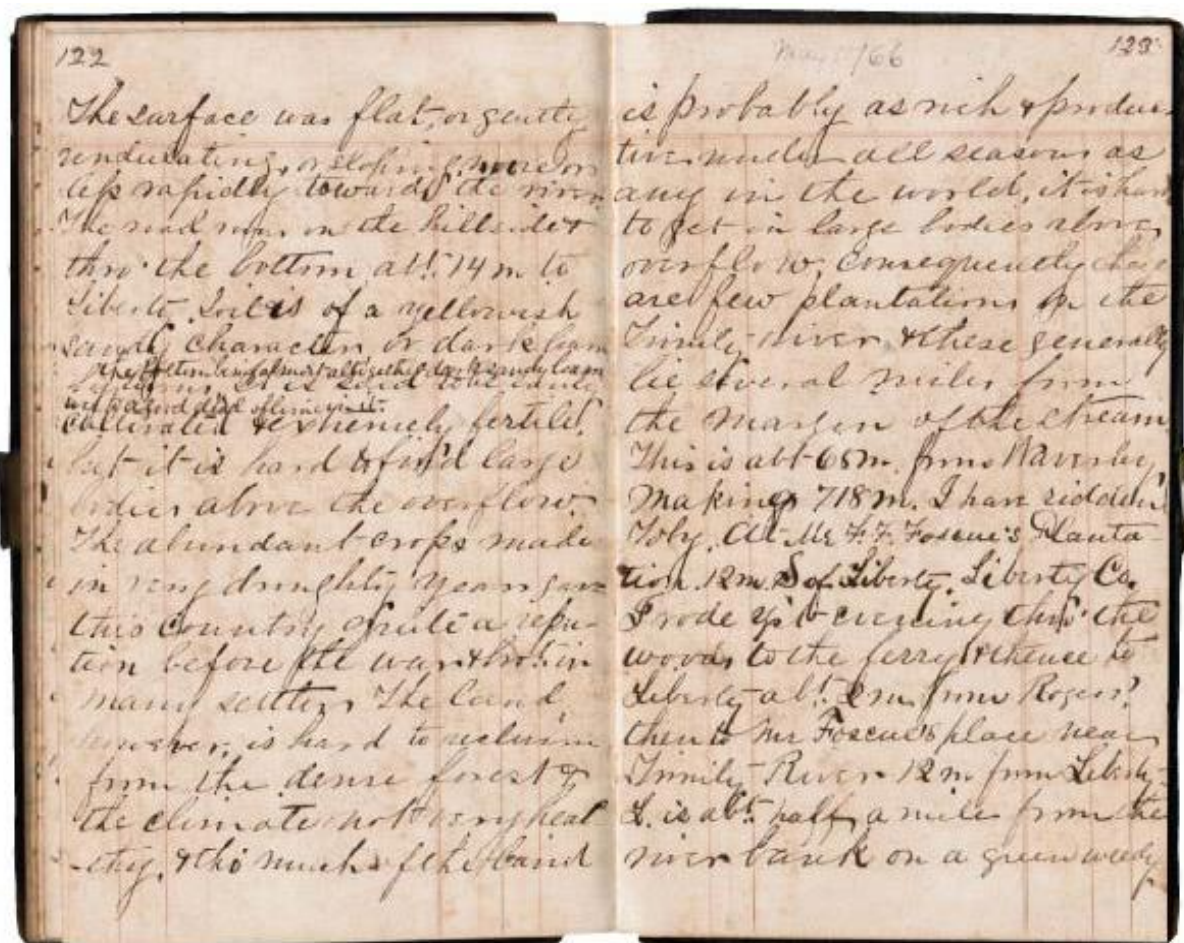 122
The surface was flat, or gently
undulating, or sloping, more or
less rapidly towards the river.
The road runs on the hillside &
thro' the bottom abt. 14 m to
Liberty. Soil is of a yellowish
sandy character or dark loam
The bottom being almost altogether dark sandy loam
It is said to be easily
with a good deal of lime in it.
cultivated & extremely fertile,
but it is hard to find large
bodies above the overflow.
The abundant crops made
in very droughty years gave
this country quite a repu-
tion before the war & brot. in
many settlers. The land,
however, is hard to reclaim
from the dense forest &
the climate not very heal-
-thy, & tho' much of the land
May /66
123
is probably as rich & produc-
tive under all seasons as
any in the world, it is hard
to get in large bodies above
overflow, consequently there
are few plantations on the
Trinity river, & these generally
lie several miles from
the margin of the stream
This is abt 68 m. from Waverley,
making 718 m. I have ridden
Toby. At Mr F. F. Foscue's Planta-
tion. 12 m S of Liberty, Liberty Co.
I rode evening thro' the
woods to the ferry & thence to
Liberty abt. 2 m from Rogers'
then to Mr Foscue's place near
Trinity River 12 m from Liberty.
L. is abt. half a mile from the
river bank on a green weedy